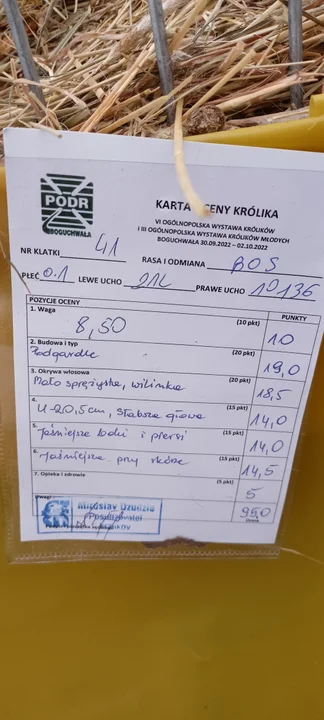 PODR
BOGUCHWAŁA
KARTA OCENY KRÓLIKA
VI OGÓLNOPOLSKA WYSTAWA KRÓLIKÓW
I III OGÓLNOPOLSKA WYSTAWA KRÓLIKÓW MŁODYCH
BOGUCHWAŁA 30.09.2022 – 02.10.2022
NR KLATKI 41 RASA I ODMIANA BOS
PŁEĆ 0.1 LEWE UCHO 91L PRAWE UCHO 1D136
POZYCJE OCENY PUNKTY
1. Waga 8,50 (10 pkt) 10
2. Budowa i typ (20 pkt)
Podgardle 19,0
3. Okrywa włosowa (20 pkt)
Mało sprężysta, 18,5
4. (15 pkt)
U-20,5cm, słabsza głowa 14,0
5. (15 pkt)
Jaśniejsze boki i piersi 14,0
6. (15 pkt)
Jaśniejsze przy skórze 14,5
7. Opieka i zdrowie (5 pkt) 5
Uwagi 95,0
Mirosław